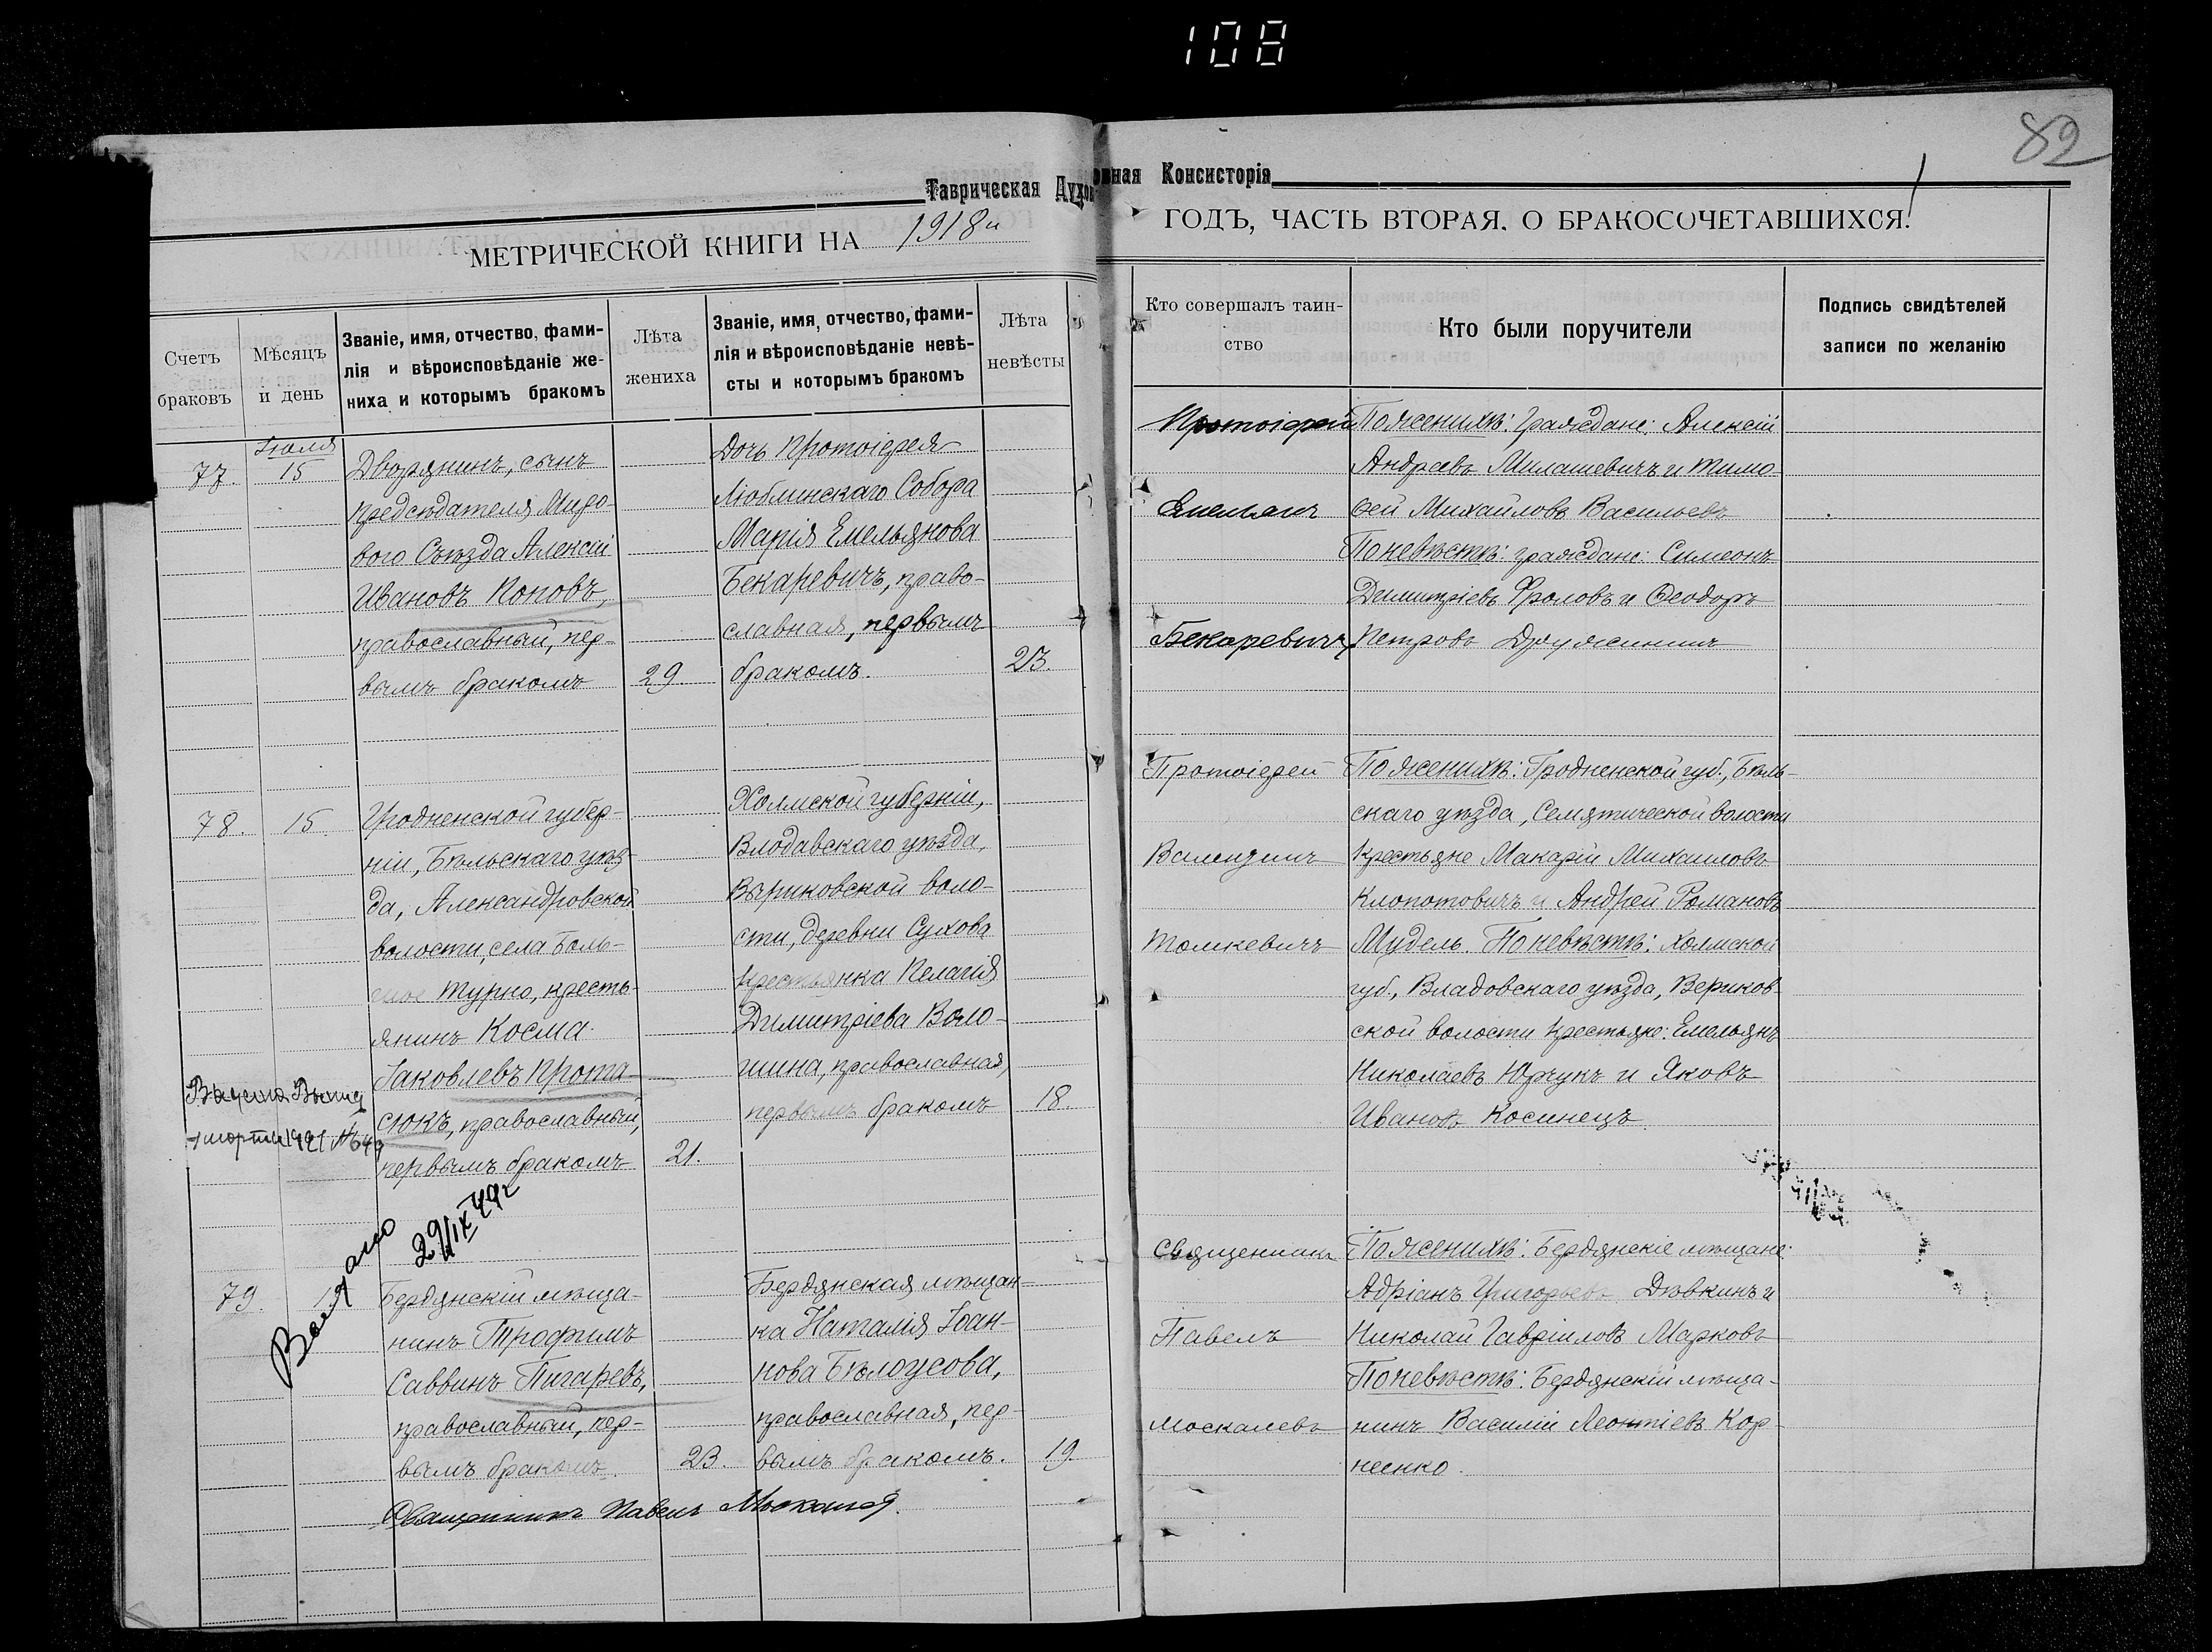 108
82
Таврическая Духовная Консисторія
МЕТРИЧЕСКОЙ КНИГИ НА 1918й ГОДЪ, ЧАСТЬ ВТОРАЯ, О БРАКОСОЧЕТАВШИХСЯ.
Счетъ браковъ
Мѣсяцъ и день
Званіе, имя, отчество, фами-
лія и вѣроисповѣданіе же-
ниха и которымъ бракомъ
Лѣта жениха
Званіе, имя, отчество, фами-
лія и вѣроисповѣданіе невѣ-
сты и которымъ бракомъ
Лѣта невѣсты
Кто совершалъ таин-
ство
Кто были поручители
Подпись свидѣтелей
записи по желанію
77.
Іюля
15
Дворянинъ, сынъ
предсѣдателя Миро-
вого Съѣзда Алексій
Ивановъ Поповъ,
православный, пер-
вымъ бракомъ
29.
Дочь Протоіерея
Люблинскаго Собора
Марія Емельянова
Бекаревичъ, право-
славная, первымъ
бракомъ.
23.
Протоіерей
Емельянъ
Бекаревичъ
По женихѣ: Граждане: Алексій
Андреевъ Милашевичъ и Тимо-
ѳей Михайловъ Васильевъ
По невѣстѣ: граждане: Симеонъ
Димитріевъ Фроловъ и Ѳеодоръ
Петровъ Дружининъ
78.
15.
Гродненской губер-
ніи, Бѣльскаго уѣз-
да, Александровской
волости, села Боль-
шое Турно, кресть-
янинъ Косма
Іаковлевъ Прота-
сюкъ, православный,
первымъ бракомъ
21.
Холмской губерніи,
Влодавскаго уѣзда,
Вырыковской воло-
сти, деревни Сухова
крестьянка Пелагія
Димитріева Воло-
шина, православная,
первымъ бракомъ
18.
Протоіерей
Валентинъ
Томкевичъ
По женихѣ: Гродненской губ., Бѣль-
скаго уѣзда, Семятической волости
крестьяне Макарій Михаиловъ
Клопотовичъ и Андрей Романовъ
Мудель. По невѣстѣ: Холмской
губ., Владовскаго уѣзда, Вериков-
ской волости крестьяне: Емельянъ
Николаевъ Юрчукъ и Яковъ
Ивановъ Косинецъ.
марта 1921 №
Выдано
29/IX 49г
79.
Бердянскій мѣща-
нинъ Трофимъ
Саввинъ Пигаревъ,
православный, пер-
вымъ бракомъ.
23.
Бердянская мѣщан-
ка Наталія Іоан-
нова Бѣлоусова,
православная, пер-
вымъ бракомъ.
19.
Священникъ
Павелъ
Москалевъ
По женихѣ: Бердянскіе мѣщане:
Адріанъ Григорьевъ Дѣвкинъ и
Николай Гавріиловъ Марковъ
По невѣстѣ: Бердянскій мѣща-
нинъ Василій Леонтіевъ Кор-
неенко.
Священникъ Павелъ Москалевъ.